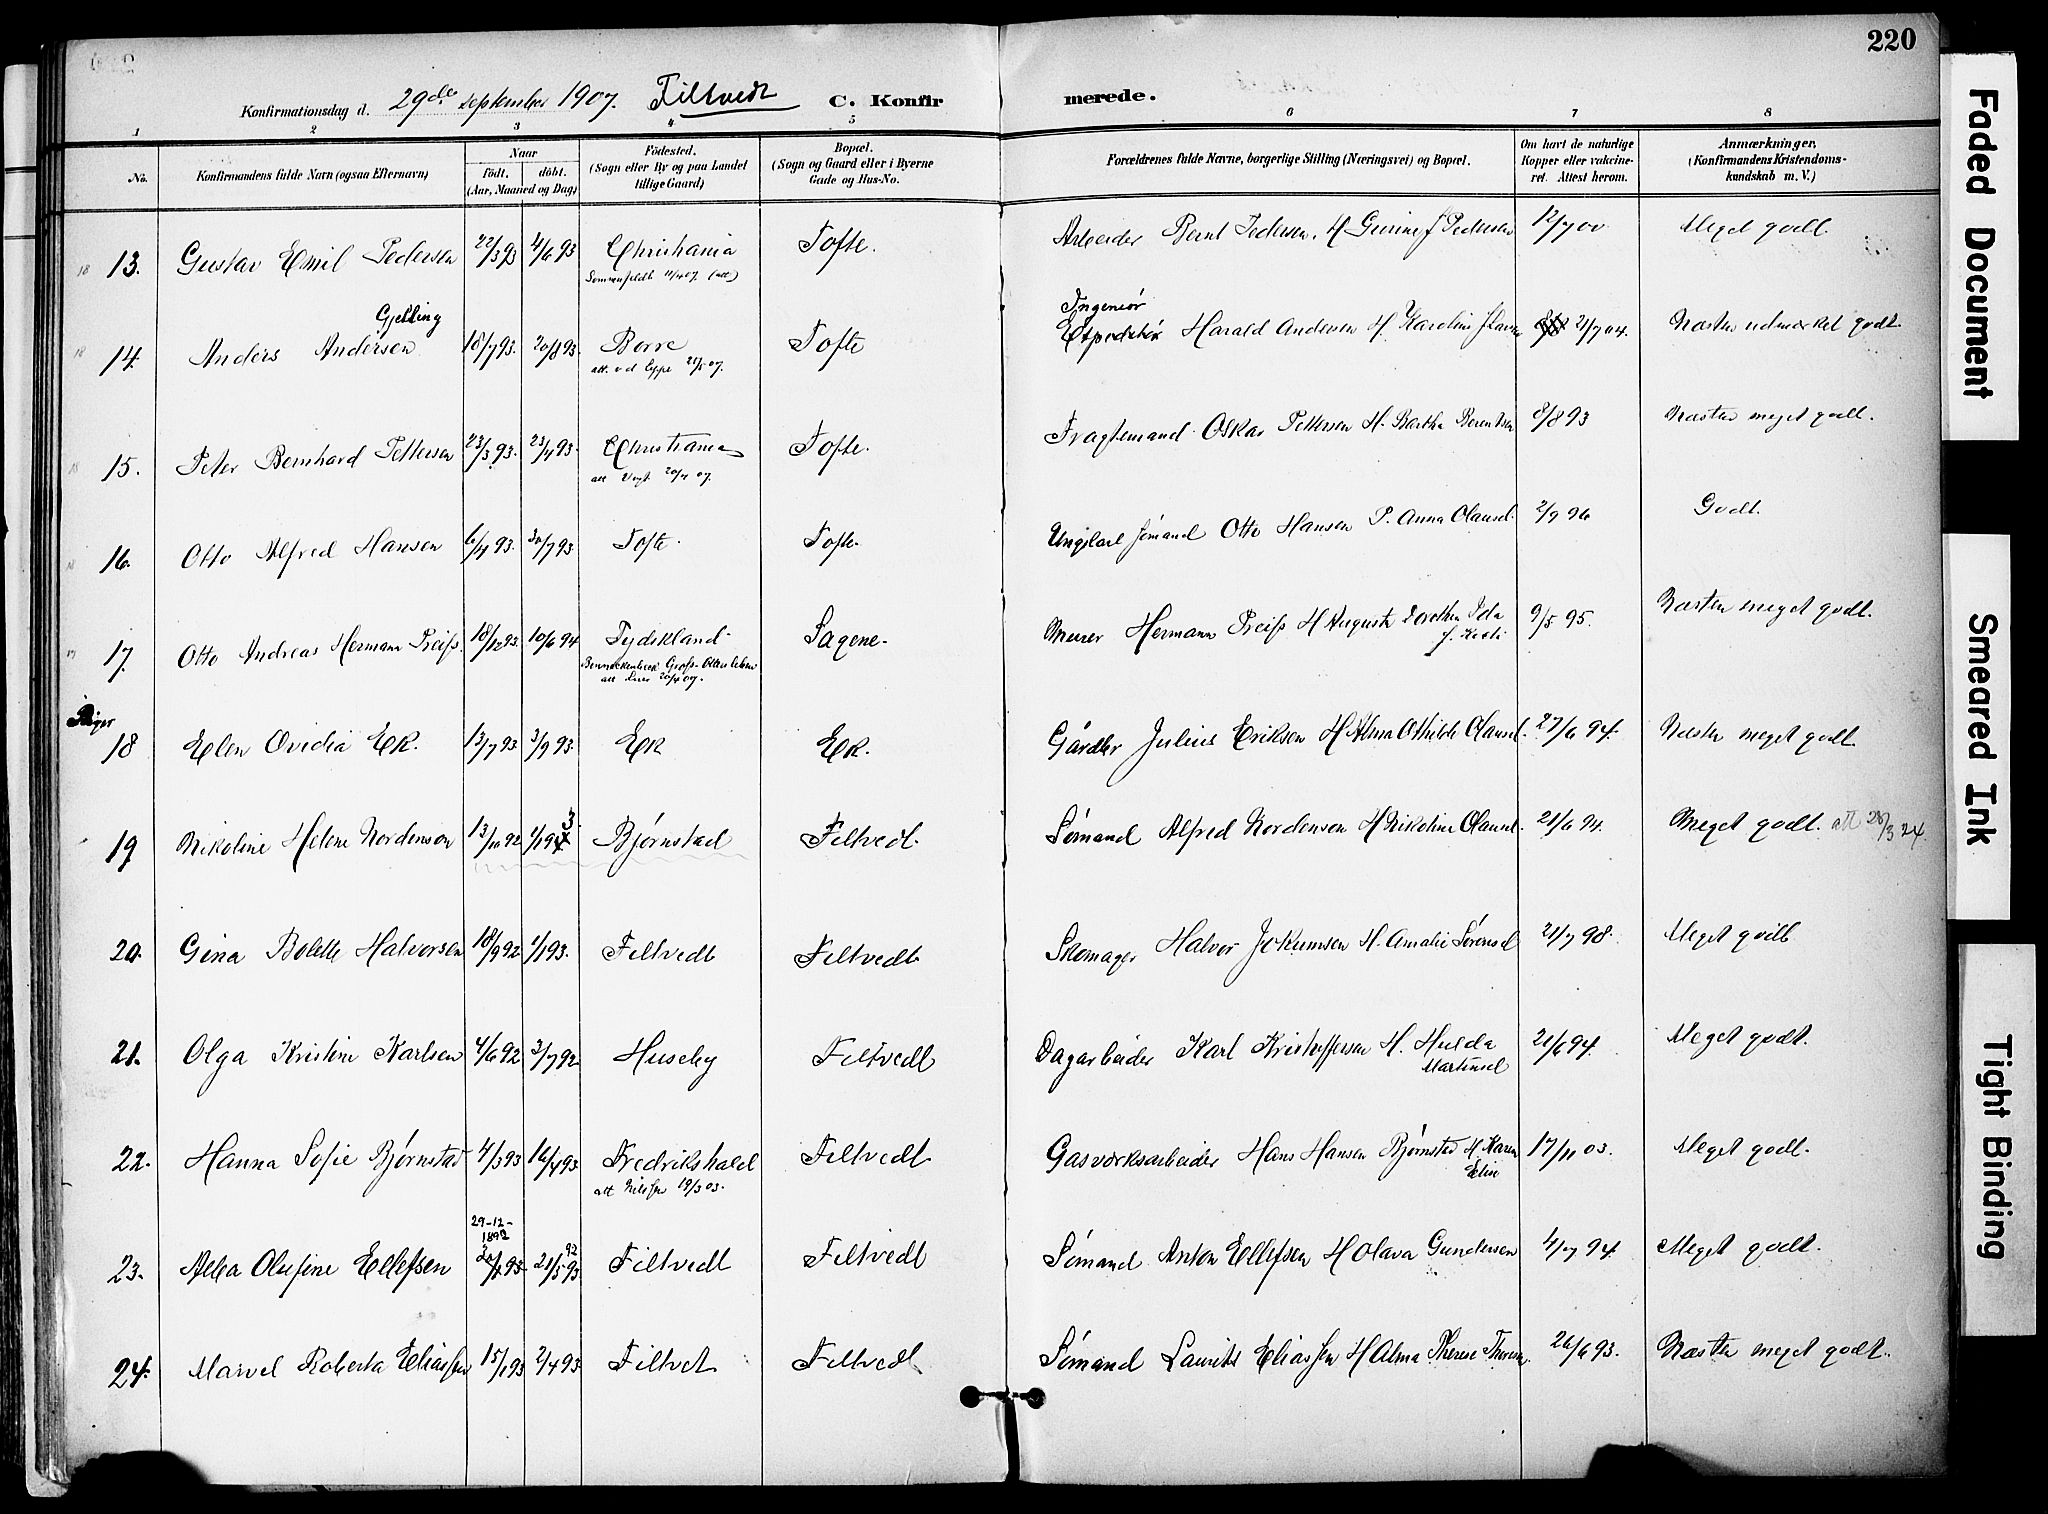 220
Konfirmationsdag d. 29de september 1907. Filtvedt C. Konfirmerede.
1 2 3 4 5 6 7 8
No. Konfirmandens fulde Navn (ogsaa Efternavn) Naar födt. döbt. (Aar, Maaned og Dag) Födested. (Sogn eller By og paa Landet tillige Gaard) Bopæl. (Sogn og Gaard eller i Byerne Gade og Hus-No. Forældrenes fulde Navne, borgerlige Stilling (Næringsvei) og Bopæl. Om havt de naturlige Kopper eller vakcineret. Attest herom. Anmærkninger. (Konfirmandens Kristendomskundskab m. V.)
13. Gustav Emil Pedersen 22/3 93 4/6 93 Christiania Tofte. Arbeider Bernt Pedersen, H. Pedersen 12/7 00 Meget godt.
Gjelling
Ingeniør
14. Anders Andersen 18/7 93. 20/8 93. Borre Tofte Expeditør Harald Andersen H. Karoline 21/7 04. Næsten udmærket godt.
15. Peter Bernhard Pettersen 23/3 93. 23/4 93. Christiania Tofte. Fragtemand Oskar Pettersen H. Bertha Berentsen 8/8 93 Næsten meget godt.
att Vogt 20/4 07.
16. Otto Alfred Hansen 6/4 93. 30/7 93 Tofte. Tofte. Ungkarl sømand Otto Hansen P. Anna Olausd. 2/9 96 Godt.
17. Otto Andreas Hermann Preiss. 18/12 93. 10/6 94 Tydskland Sagene. Murer Hermann Preiss H Augusta Dorothea Ida 9/5 95. Næsten meget godt.
Piger
18 Elen Ovidia Ek. 13/7 93 3/9 93 Ek Ek. Gårdbr Julius Eriksen H Alma Othilde Olausd. 27/6 94. Næsten meget godt.
19 Nikoline Helene Nordensen 13/10 92 1/1 93 Bjørnstad Filtvedt. Sømand Alfred Nordensen H Nikoline Olausd. 21/6 94. Meget godt. att 28/3 24
20. Gina Bolette Halvorsen 18/9 92 1/1 93. Filtvedt Filtvedt. Skomager Halvor Jokumsen H. Amalie Sørensd 21/7 98. Meget godt
21. Olga Kristine Karlsen 4/6 92 3/7 92 Huseby Filtvedt Dagarbeider Karl Kristoffersen H. Hulda 21/6 94. Meget godt.
Martinsd
22. Hanna Sofie Bjørnstad 4/3 93 16/4 93 Fredrikshald Filtvedt Gasværksarbeider Hans Hansen Bjørnstad H Karen 17/11 03. Meget godt.
att Nilssen 19/3 03. Elise
29-12-1892
23. Alba Olufine Ellefsen 93. 21/5 93 92 Filtvedt Filtvedt Sømand Anton Ellefsen H Olava Gundersen 4/7 94. Meget godt.
24. Marvel Roberta Eliassen 15/1 93 2/4 93 Filtvet Filtvedt Sømand Laurits Eliassen H Alma Therese 26/6 93. Næsten meget godt.
Faded Document
Smeared Ink
Tight Binding